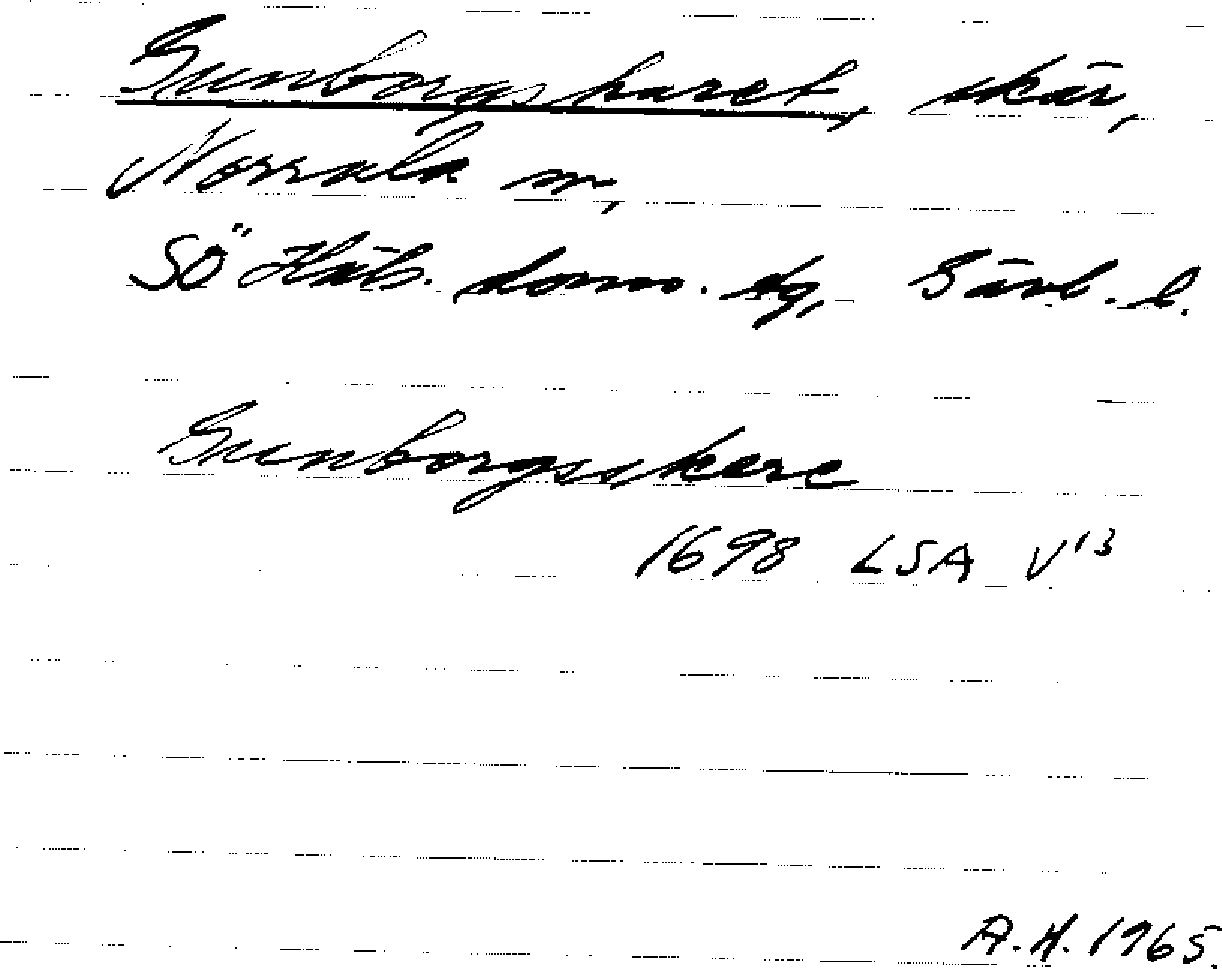 Gunborgsharet, skär,
Norrala sn,
SÖ Häls. doms. dg, Gävl. l.
Gunborgsskere
1698 LSA V¹³
A.H. 1965.